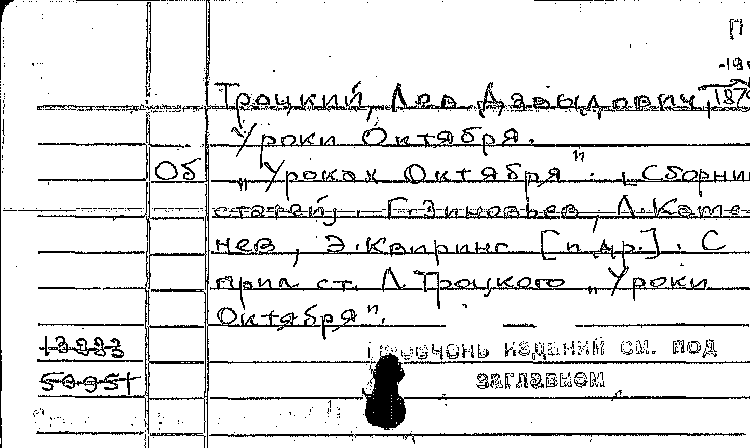 П
Троцкий, Лев Давыдович, 187
Уроки Октября.
Об „Уроках Октября". [Сборник
статей]. Г. Зиновьев, Л. Каме-
нев, Э. Квиринг [и др.]. С
прил ст. Л. Троцкого „Уроки
Октября".
13283
Перечень изданий см. под
заглавием